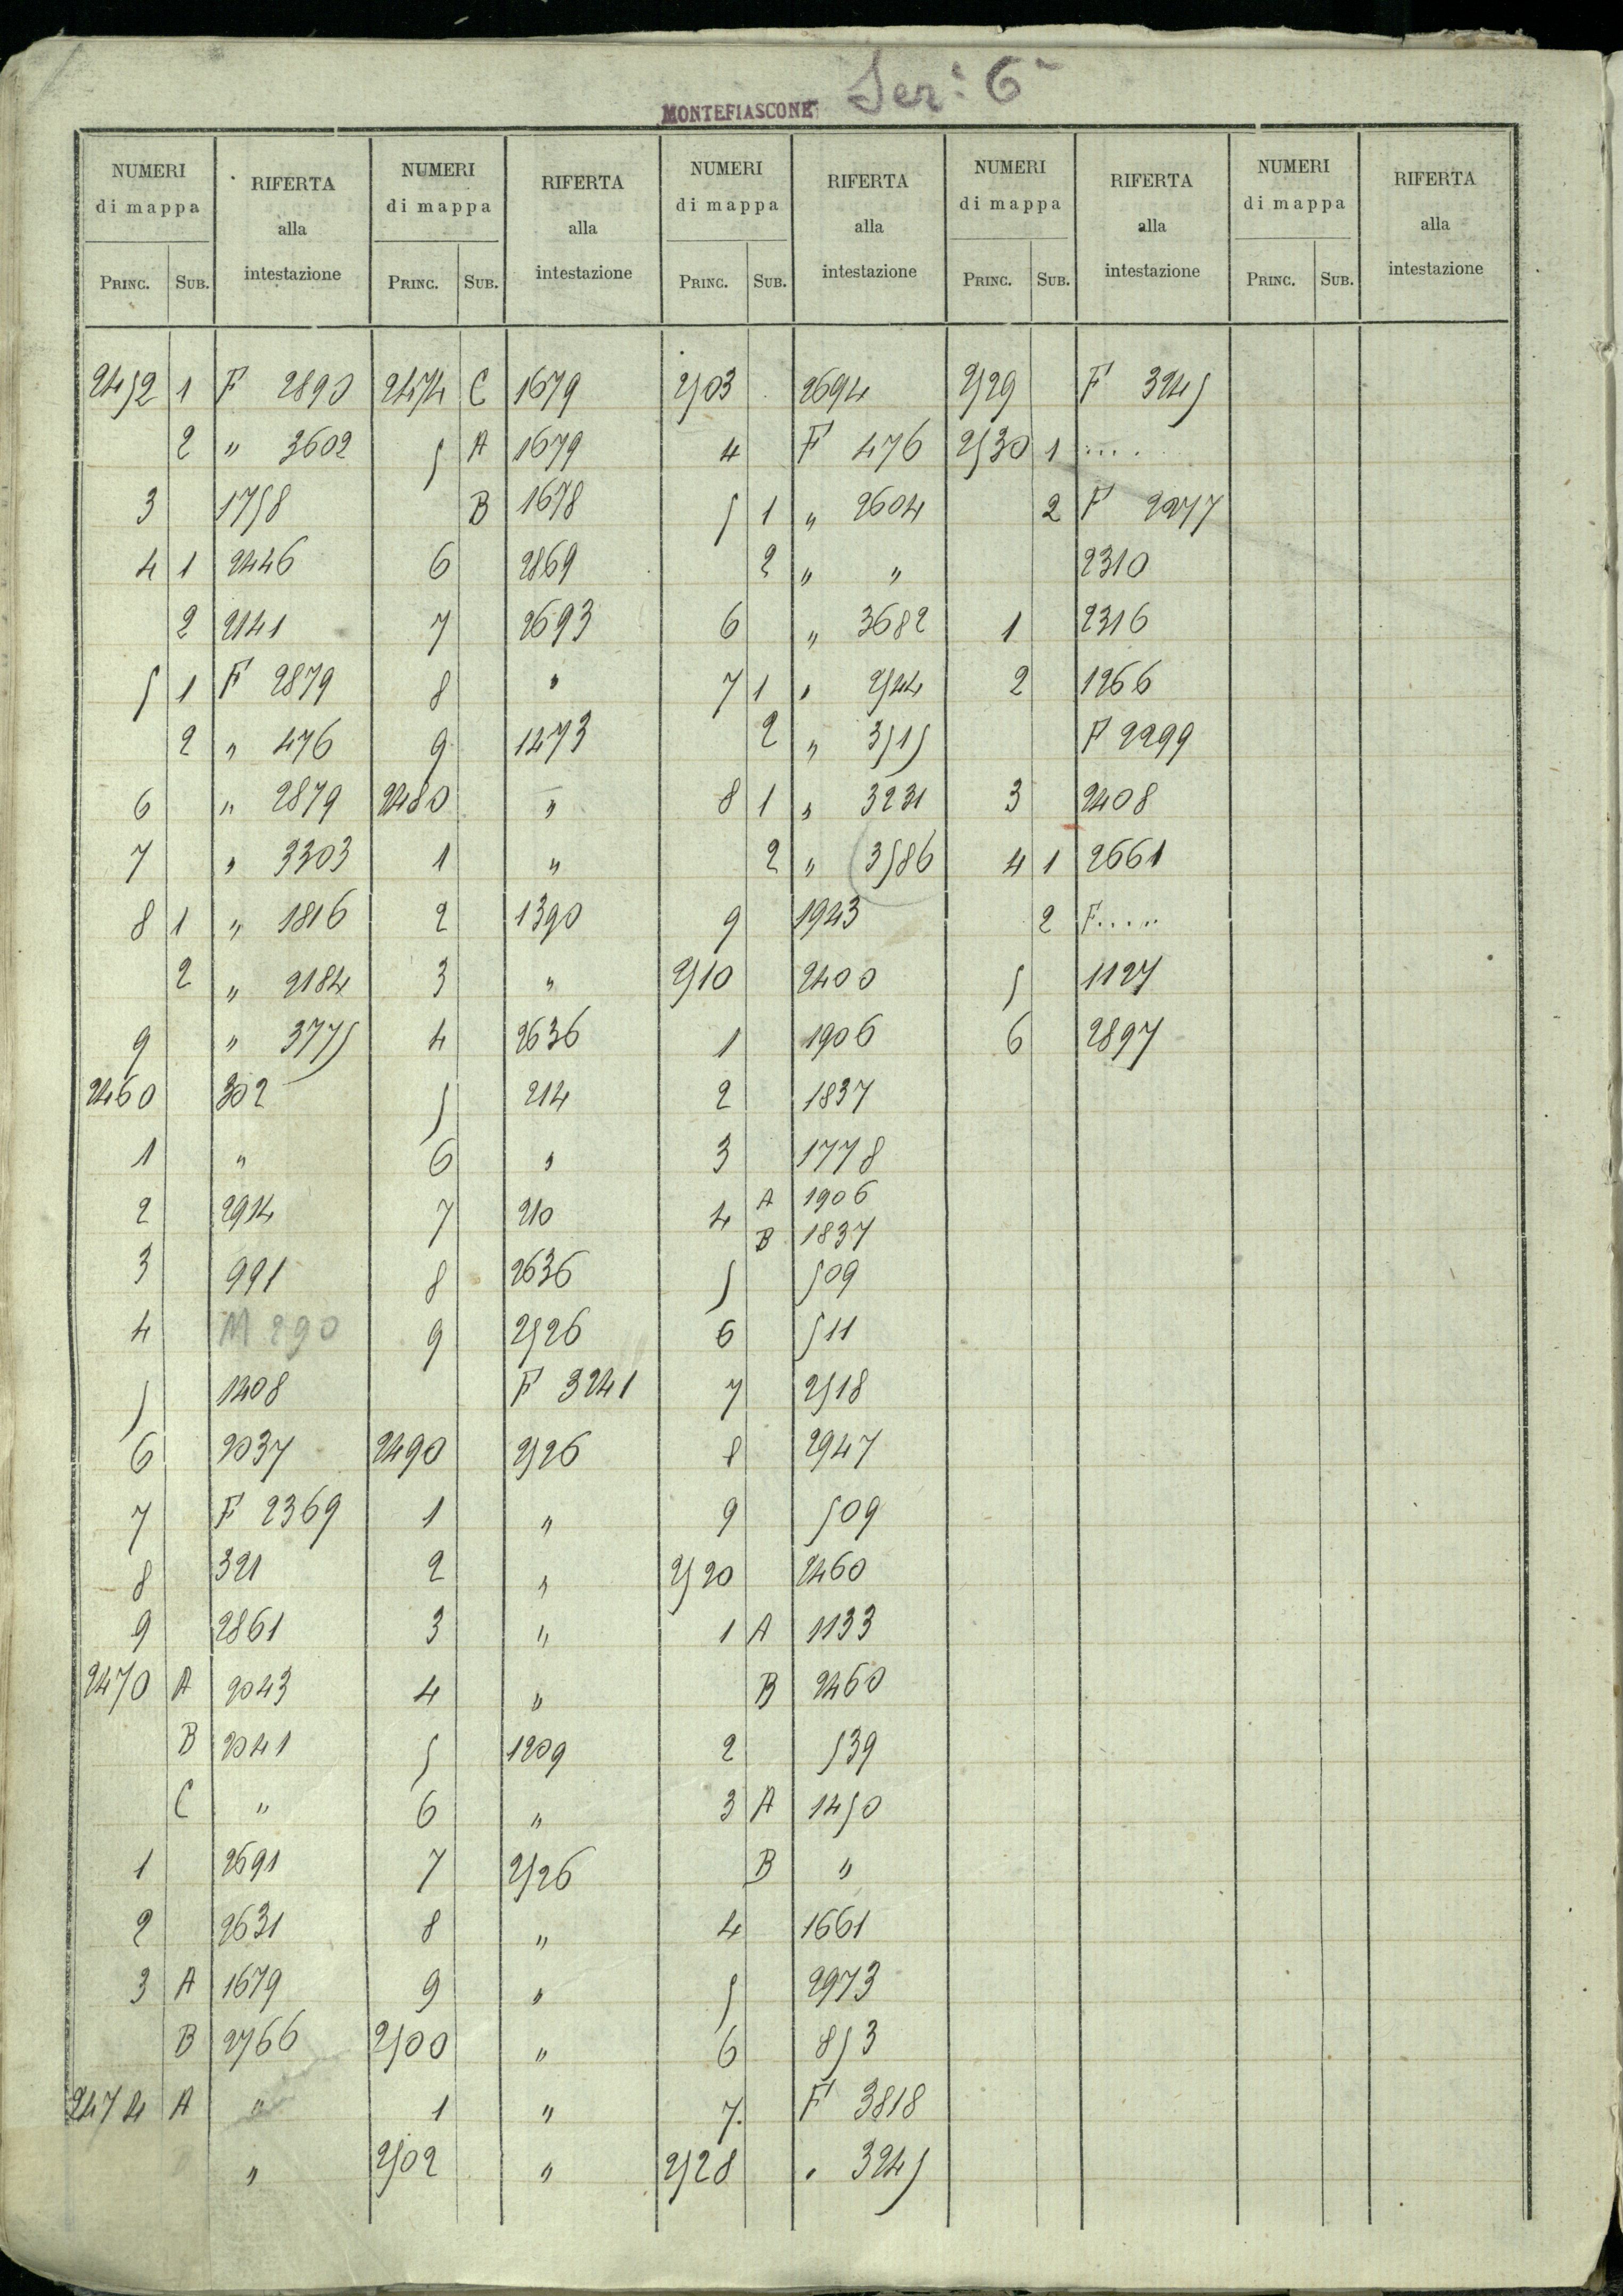 MONTEFIASCONE Sez: 6ª
NUMERI di mappa RIFERTA alla intestazione NUMERI di mappa RIFERTA alla intestazione NUMERI di mappa RIFERTA alla intestazione NUMERI di mappa RIFERTA alla intestazione NUMERI di mappa RIFERTA alla intestazione
PRINC. SUB. PRINC. SUB. PRINC. SUB. PRINC. SUB. PRINC. SUB.
2452 1 F 2890 2474 C 1679 2503 2694 2529 F 3245
2 " 3602 5 A 1679 4 F 476 2530 1 ....
3 1758 B 1678 5 1 " 2604 2 F 2277
4 1 2446 6 2869 2 " " 2310
2 2141 7 2693 6 " 3682 1 2316
5 1 F 2879 8 " 7 1 " 2544 2 1266
2 " 476 9 1473 2 " 3515 F 2299
6 " 2879 2480 " 8 1 " 3231 3 2408
7 " 3303 1 " 2 " 3586 4 1 2661
8 1 " 1816 2 1390 9 1943 2 F.....
2 " 2184 3 " 2510 2400 5 1127
9 " 3775 4 2636 1 1906 6 2897
2460 302 5 214 2 1837
1 " 6 " 3 1778
2 2914 7 210 4 A 1906
B 1837
3 991 8 2636 5 509
4 M 290 9 2526 6 511
5 1408 F 3241 7 2518
6 2037 2490 2526 8 2947
7 F 2369 1 " 9 509
8 321 2 " 2520 2460
9 2861 3 " 1 A 1133
2470 A 2043 4 " B 2460
B 2041 5 1209 2 539
C " 6 " 3 A 1450
1 2691 7 2526 B "
2 2631 8 " 4 1661
3 A 1679 9 " 5 2973
B 2766 2500 " 6 853
2474 A " 1 " 7. F 3818
" 2502 " 2528 " 3245